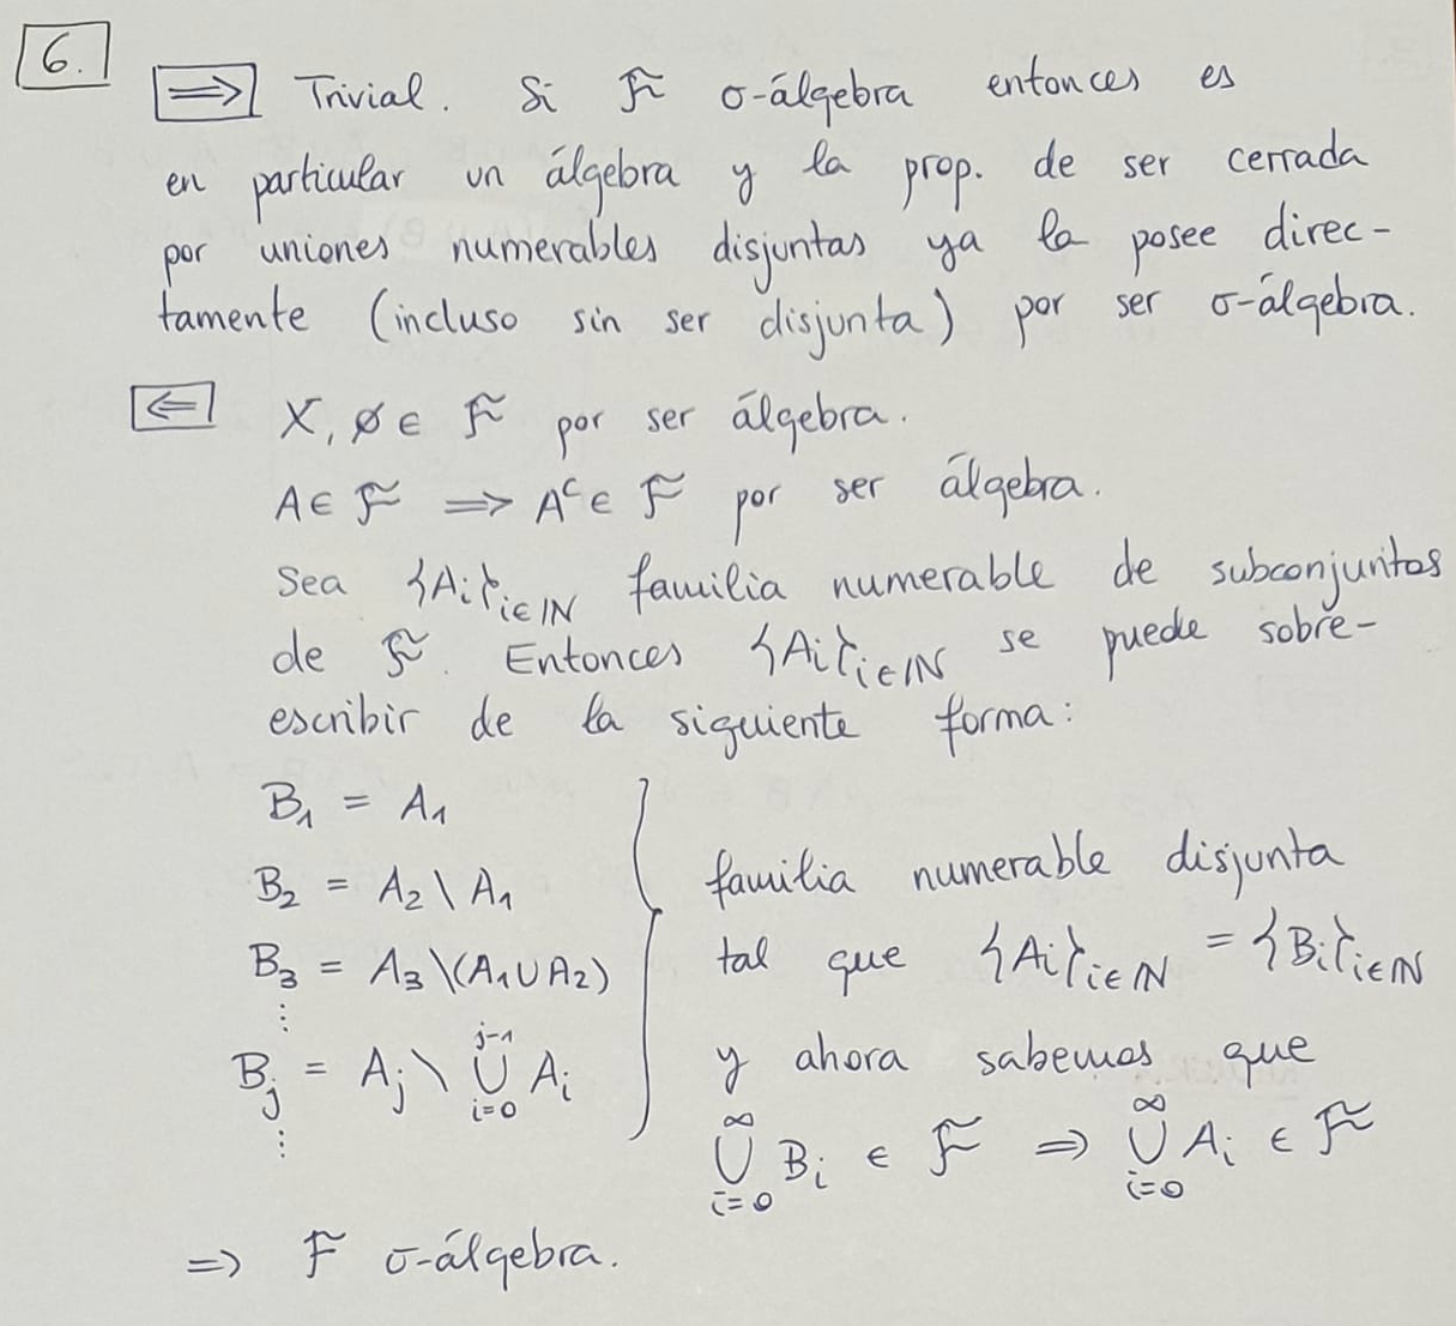 6.
⟹ Trivial. Si F̃ σ-álgebra entonces es
en particular un álgebra y la prop. de ser cerrada
por uniones numerables disjuntas ya la posee direc-
tamente (incluso sin ser disjunta) por ser σ-álgebra.
⟸ X, ∅ ∈ F̃ por ser álgebra.
A ∈ F̃ ⟹ Aᶜ ∈ F̃ por ser álgebra.
Sea {Ai}i∈ℕ familia numerable de subconjuntos
de F̃. Entonces {Ai}i∈ℕ se puede sobre-
escribir de la siguiente forma:
B₁ = A₁
B₂ = A₂ \ A₁
B₃ = A₃ \ (A₁ ∪ A₂)
⋮
Bj = Aj \ ⋃_{i=0}^{j-1} Ai
⋮
familia numerable disjunta
tal que {Ai}i∈ℕ = {Bi}i∈ℕ
y ahora sabemos que
⋃_{i=0}^{∞} Bi ∈ F̃ ⟹ ⋃_{i=0}^{∞} Ai ∈ F̃
⟹ F σ-álgebra.